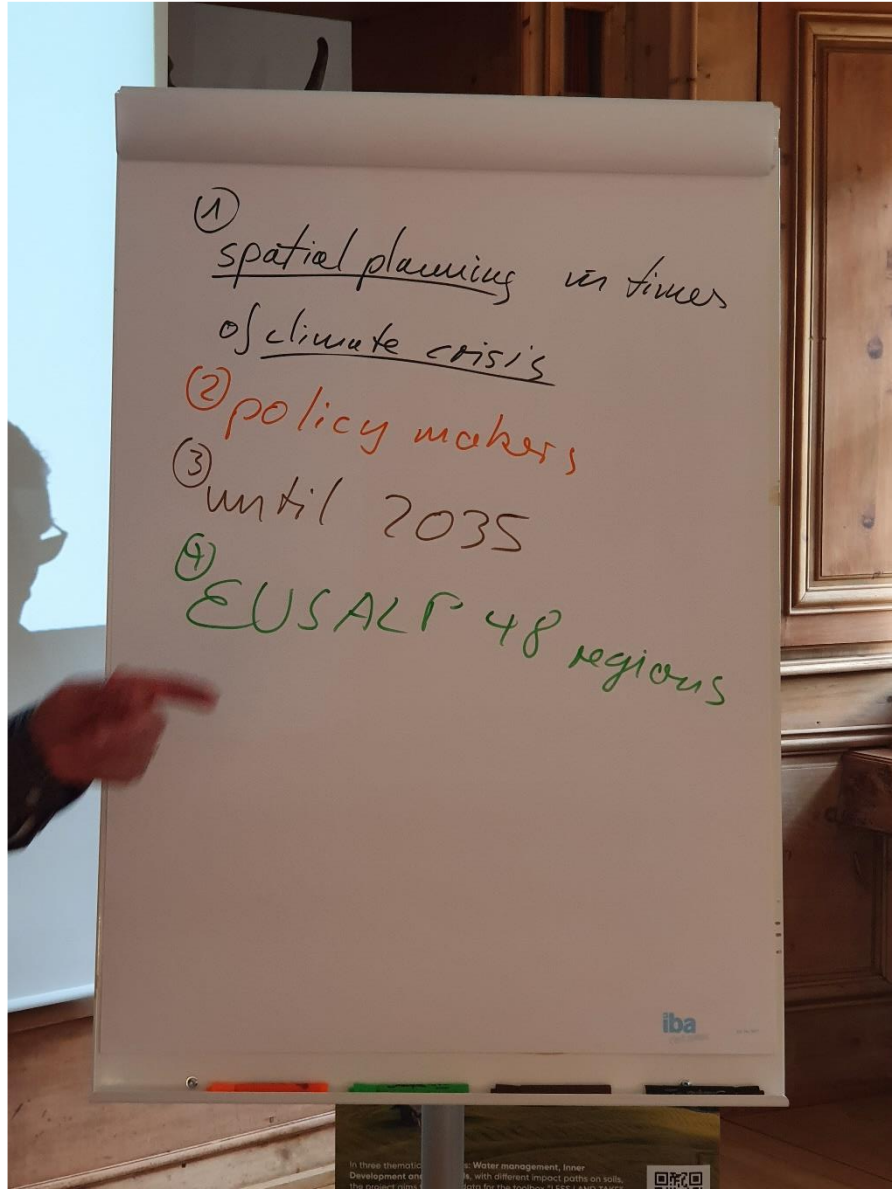 ①
spatial planning in times
of climate crisis
② policy makers
③ until 2035
④
EUSALP 48 regions
iba
In three thematic
s: Water management, Inner
Development an
s, with different impact paths on soils,
the project aims
data for the toolbox "LESS LAND TAKE"